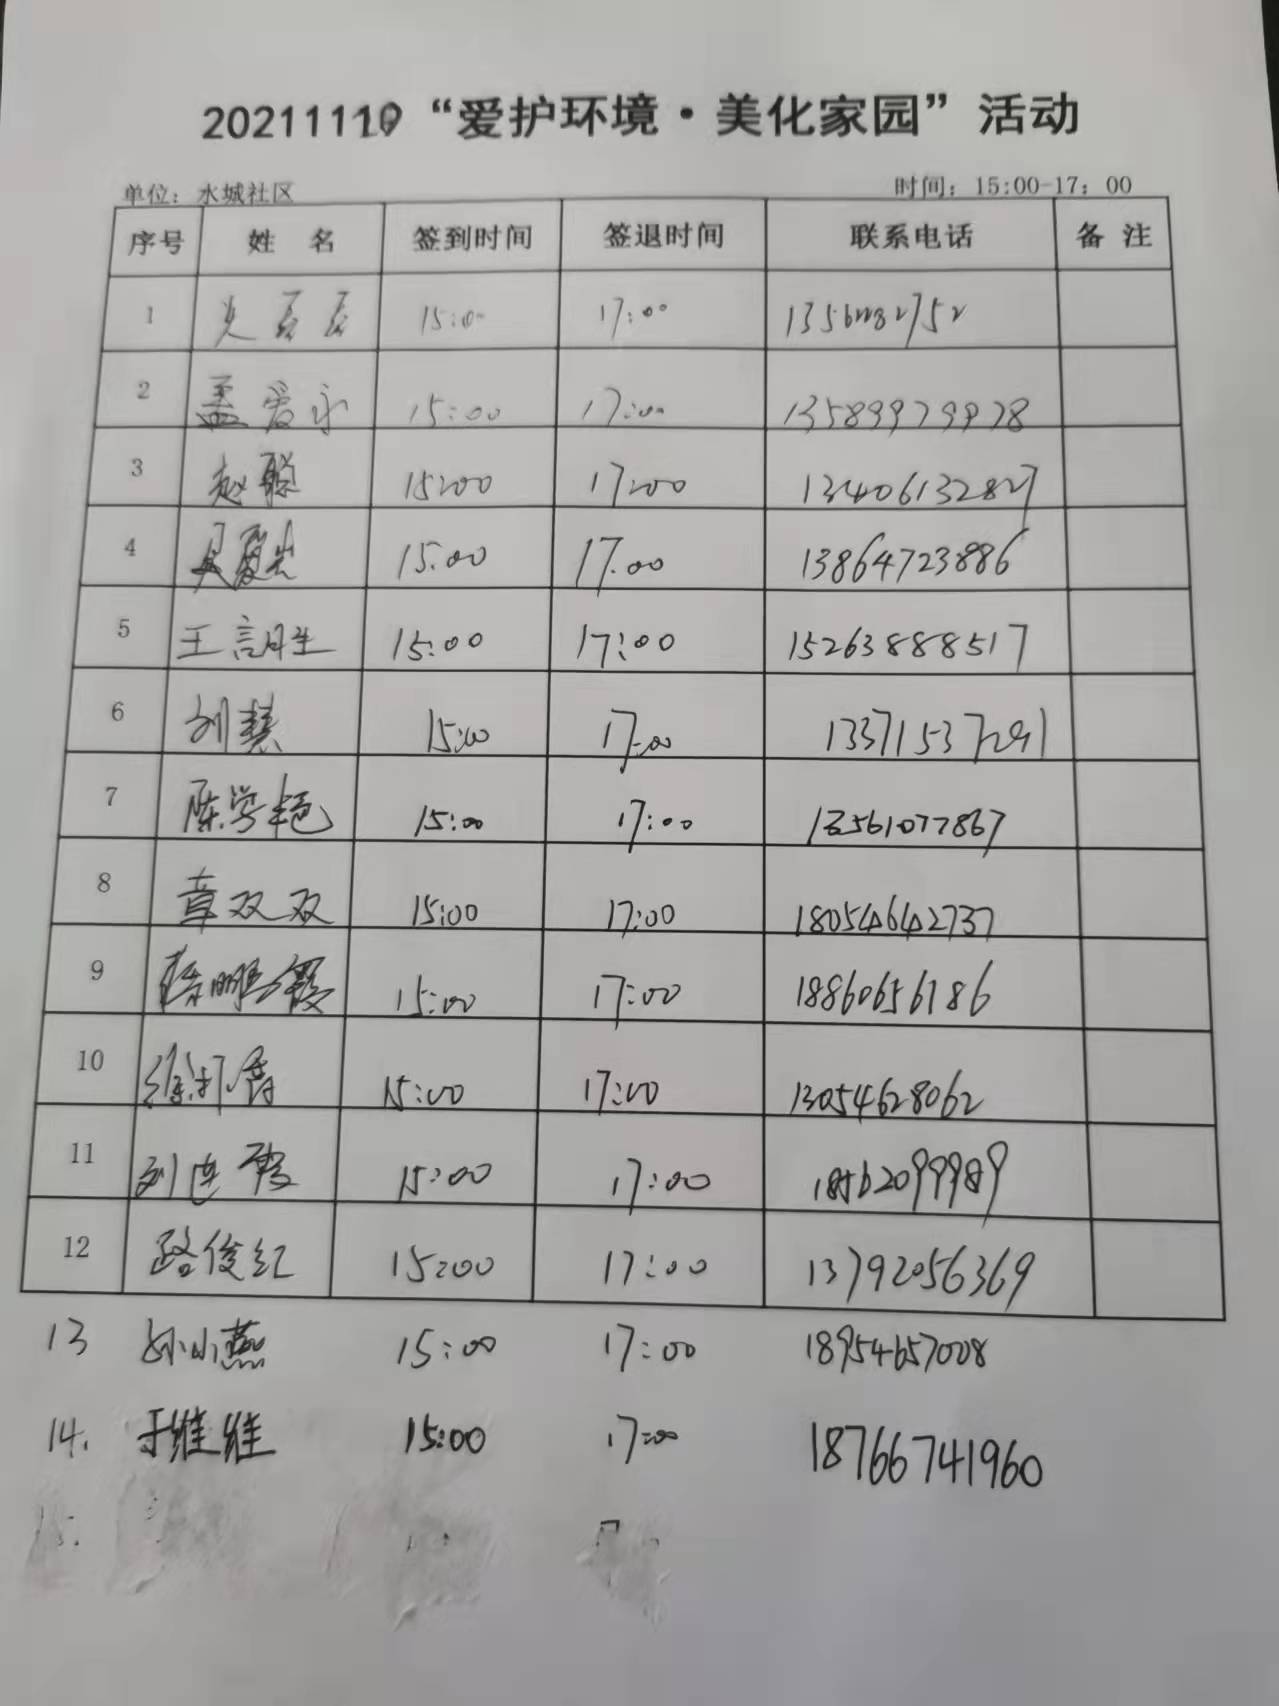 20211110“爱护环境·美化家园”活动
单位：水城社区 时间：15:00-17：00
序号 姓 名 签到时间 签退时间 联系电话 备 注
1 15:00 17:00
2 孟爱永 15:00 17:00 13589979978
3 赵聪 15:00 17:00 13406132827
4 15:00 17:00 13864723886
5 王言胜 15:00 17:00 15263888517
6 刘慧 15:00 17:00 13371537291
7 陈学艳 15:00 17:00 13561077867
8 章双双 15:00 17:00 18054642737
9 15:00 17:00 18860656186
10 15:00 17:00 13054628062
11 刘连霞 15:00 17:00 18562099989
12 路俊红 15:00 17:00 13792056369
13 孙小燕 15:00 17:00 18954657008
14. 于维维 15:00 17:00 18766741960